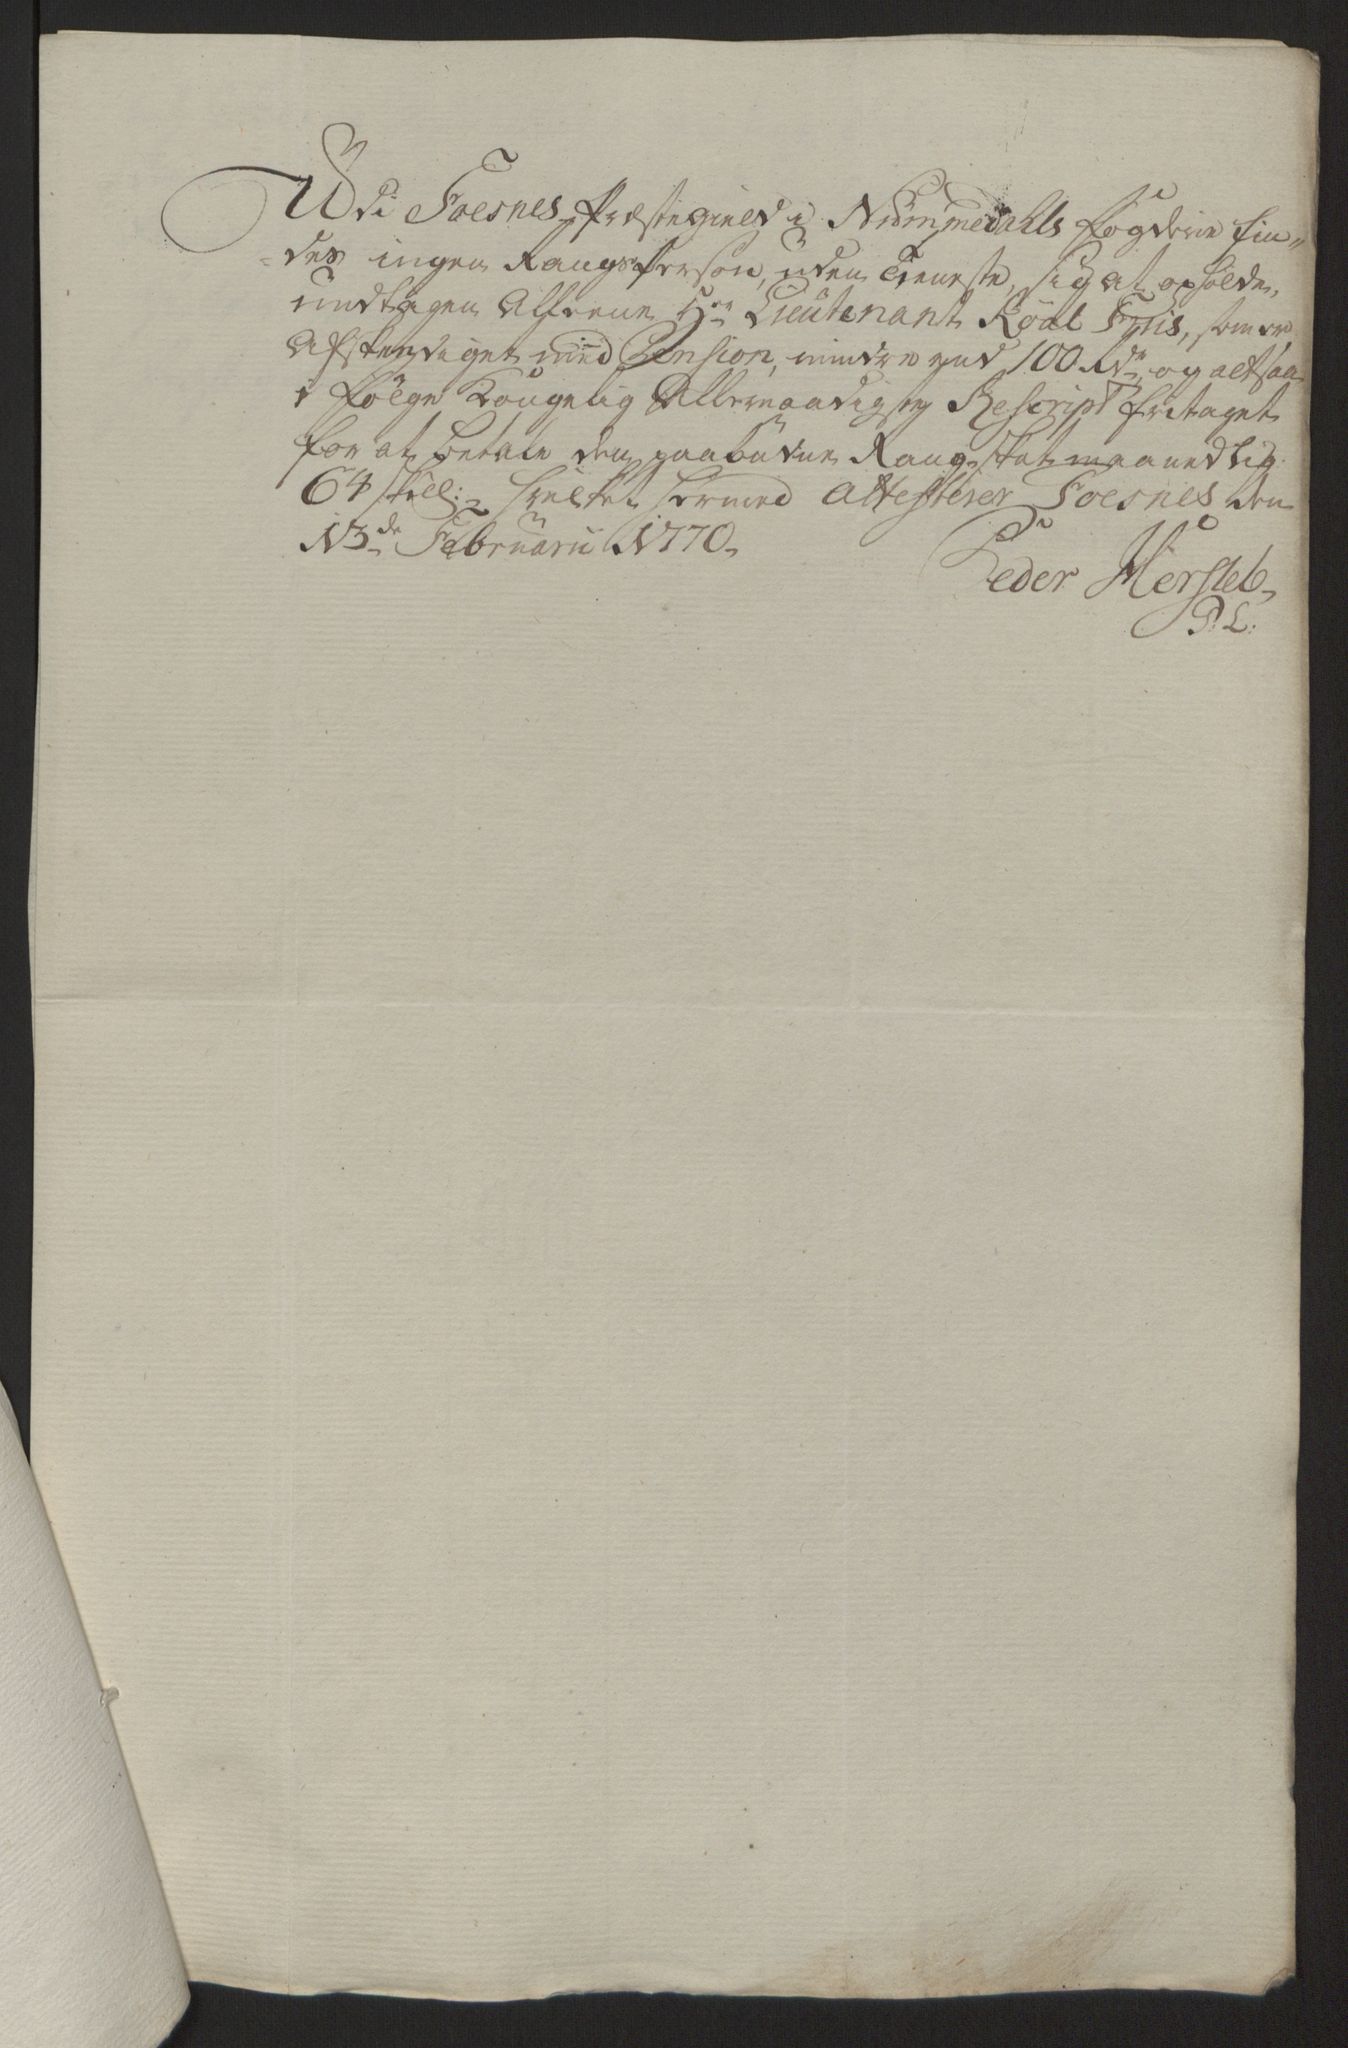 Udi Foesnes Præstegield i Nummedahls fogderie fin„
„des ingen Rangs Person, uden Tieneste, sig at opholde,
undtagen Alleene Hr Lieutenant Röal Friis, som er
Afskendiget med Pension, mindre end 100 Rdr, og altsaa
i fölge Kongelig Allernaadigste Rescript fritaget
for at betale den paabudne Rang-Skat maanedlig
64 skill: hvilket hermed Attesterer Foesnes den
13de Februarii 1770.
Peder Hersleb
P: L: